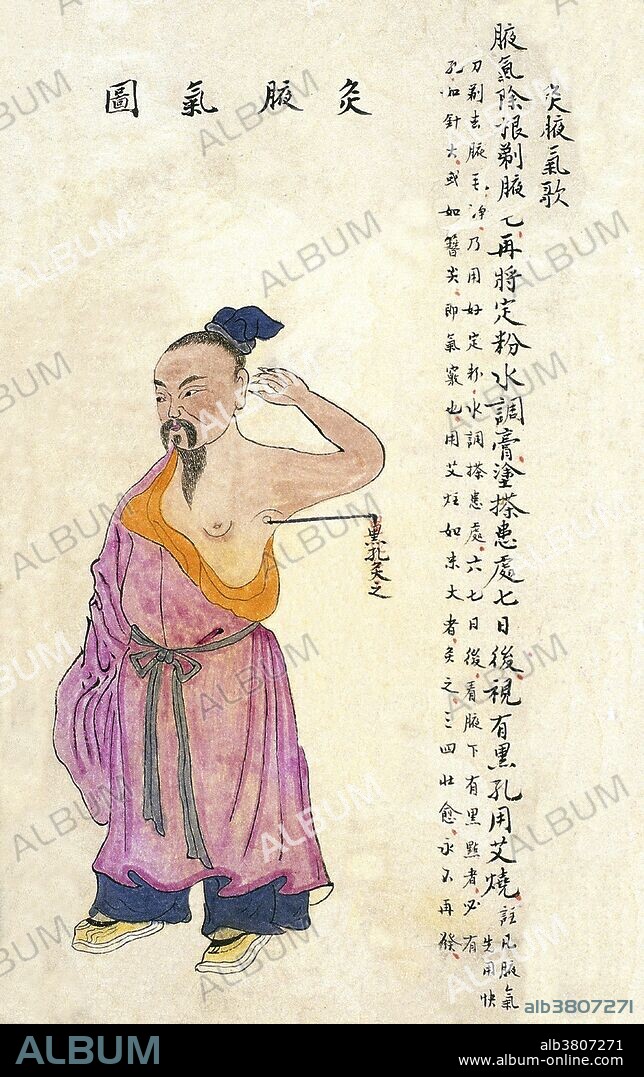 灸腋氣圖
灸腋氣歌
腋氣除根剃腋毛再將定粉水調膏塗搽患處七日後視有黑孔用艾燒
註凡腋氣
先用快
刀剃去腋毛淨乃用好定粉水調搽患處六七日後看腋下有黑點者必有
孔如針大或如簪尖即氣竅也用艾炷如米大者灸之三四壯愈永不再發
黑孔灸之
alb3807271
ALBUM
alb3807271
www.album-online.com